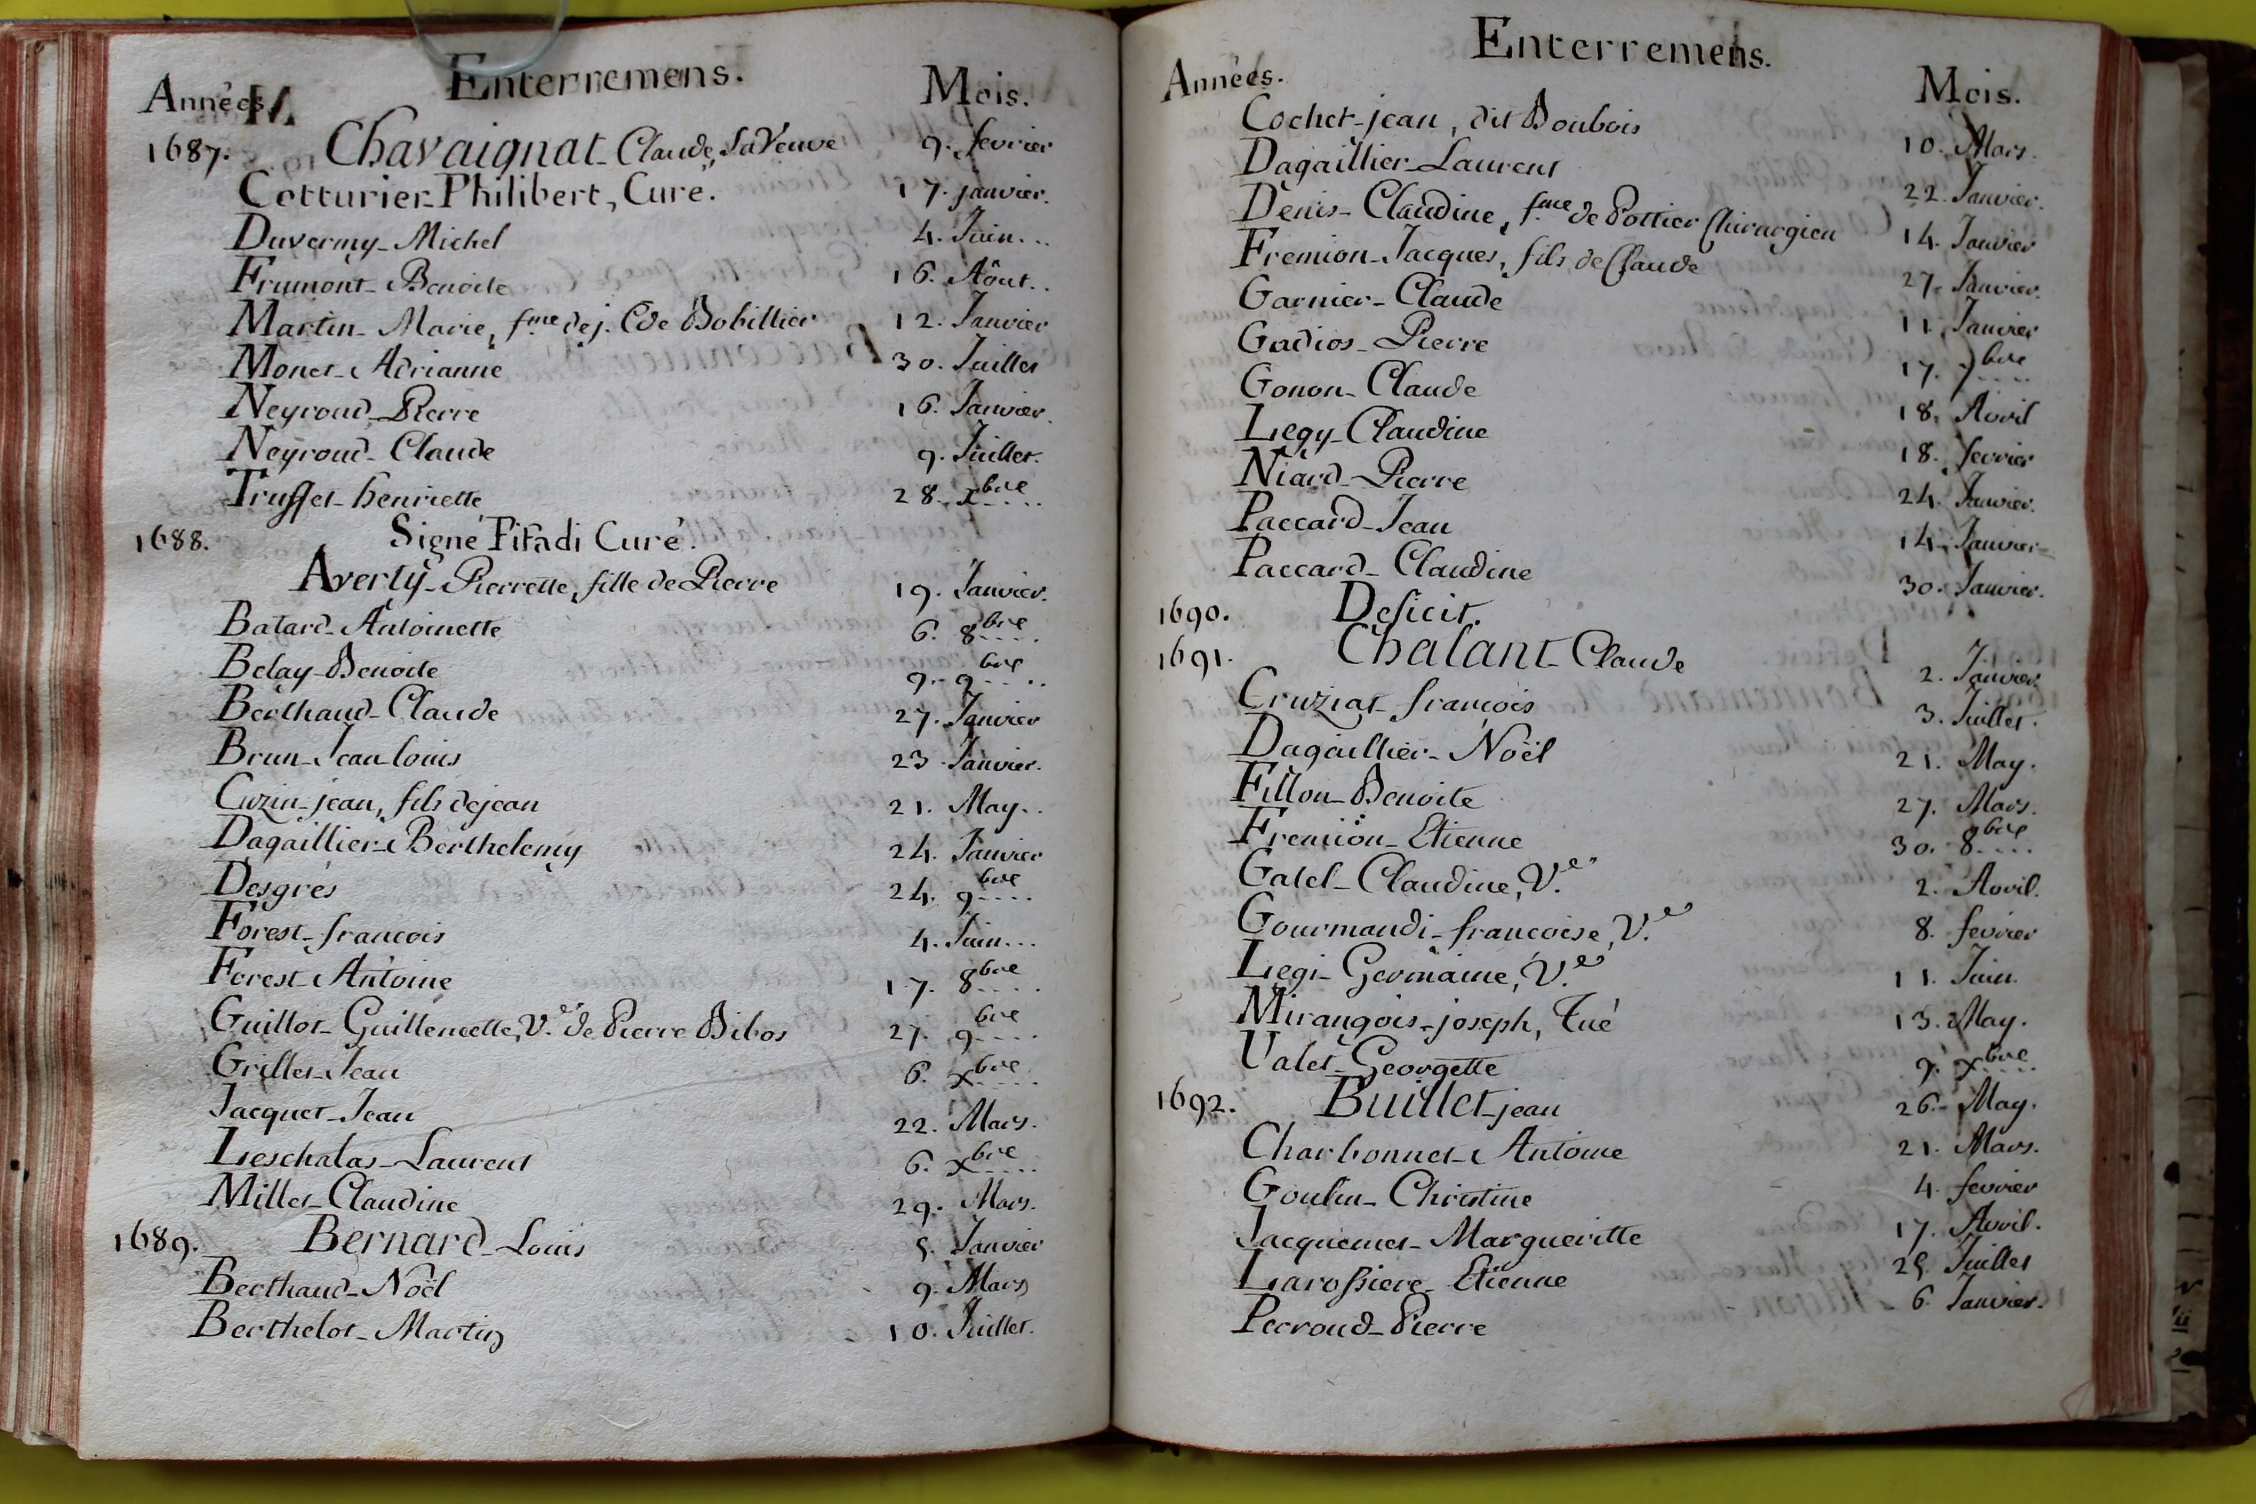 Enterremens.
Années. Mois.
1687. Chavaignat - Claude, sa Veuve 9. fevrier
Cotturier - Philibert, Curé. 17. janvier.
Duvermy - Michel 4. Juin...
Frumont - Benoite 16. Aôut..
Martin - Marie, fme de j. Cde Bobillier 12. Janvier
Monet - Adrianne 30. Juillet
Neyroud - Pierre 16. Janvier.
Neyroud - Claude 9. Juillet.
Truffet - henriette 28. xbre....
1688. Signé Fitadi Curé.
Averly - Pierrette, fille de Pierre 19. Janvier.
Batard - Antoinette 6. 8bre....
Belay - Benoite 9. 9bre....
Berthaud - Claude 27. Janvier
Brun - Jean louis 23. Janvier.
Cuzin - jean, fils de jean 21. May..
Dagaillier - Berthelemy 24. Janvier
Desgres 24. 9bre....
Forest - francois 4. Juin...
Forest - Antoine 17. 8bre....
Guillot - Guillemette, V.e de Pierre Bibos 27. 9bre....
Grillet - Jean 6. xbre....
Jacquet - Jean 22. Mars.
Leschalas - Laurent 6. xbre....
Millet - Claudine 29. Mars.
1689. Bernard - Louis 5. Janvier
Berthaud - Noël 9. Mars
Berthelot - Martin 10. Juillet.
Enterremens.
Années. Mois.
Cochet - jean, dit Boubois 10. Mars.
Dagaillier - Laurent 22. Janvier.
Denis - Claudine, fme de Pottier Chirurgien 14. Janvier
Fremion - Jacques, fils de Claude 27. Janvier.
Garnier - Claude 11. Janvier
Gadios - Pierre 17. 7bre....
Gonon - Claude 18. Avril
Legy - Claudine 18. fevrier
Niard - Pierre 24. Janvier.
Paccard - Jean 14. Janvier
Paccard - Claudine 30. Janvier.
1690. Deficit.
1691. Chalant - Claude 2. Janvier
Cruziat - francois 3. Juillet.
Dagaillier - Noël 21. May.
Fillon - Benoite 27. Mars.
Fremion - Etienne 30. 8bre....
Gatel - Claudine, V.e 2. Avril.
Gourmandi - francoise, V.e 8. fevrier
Legi - Germaine, V.e 11. Juin.
Mirangois - joseph, Tué 13. May.
Valet - Georgette 9. xbre....
1692. Buillet - jean 26. May.
Charbonnet - Antoine 21. Mars.
Goulin - Christine 4. fevrier
Jacquemet - Margueritte 17. Avril.
Larossiere - Etienne 25. Juillet
Perroud - Pierre 6. Janvier.